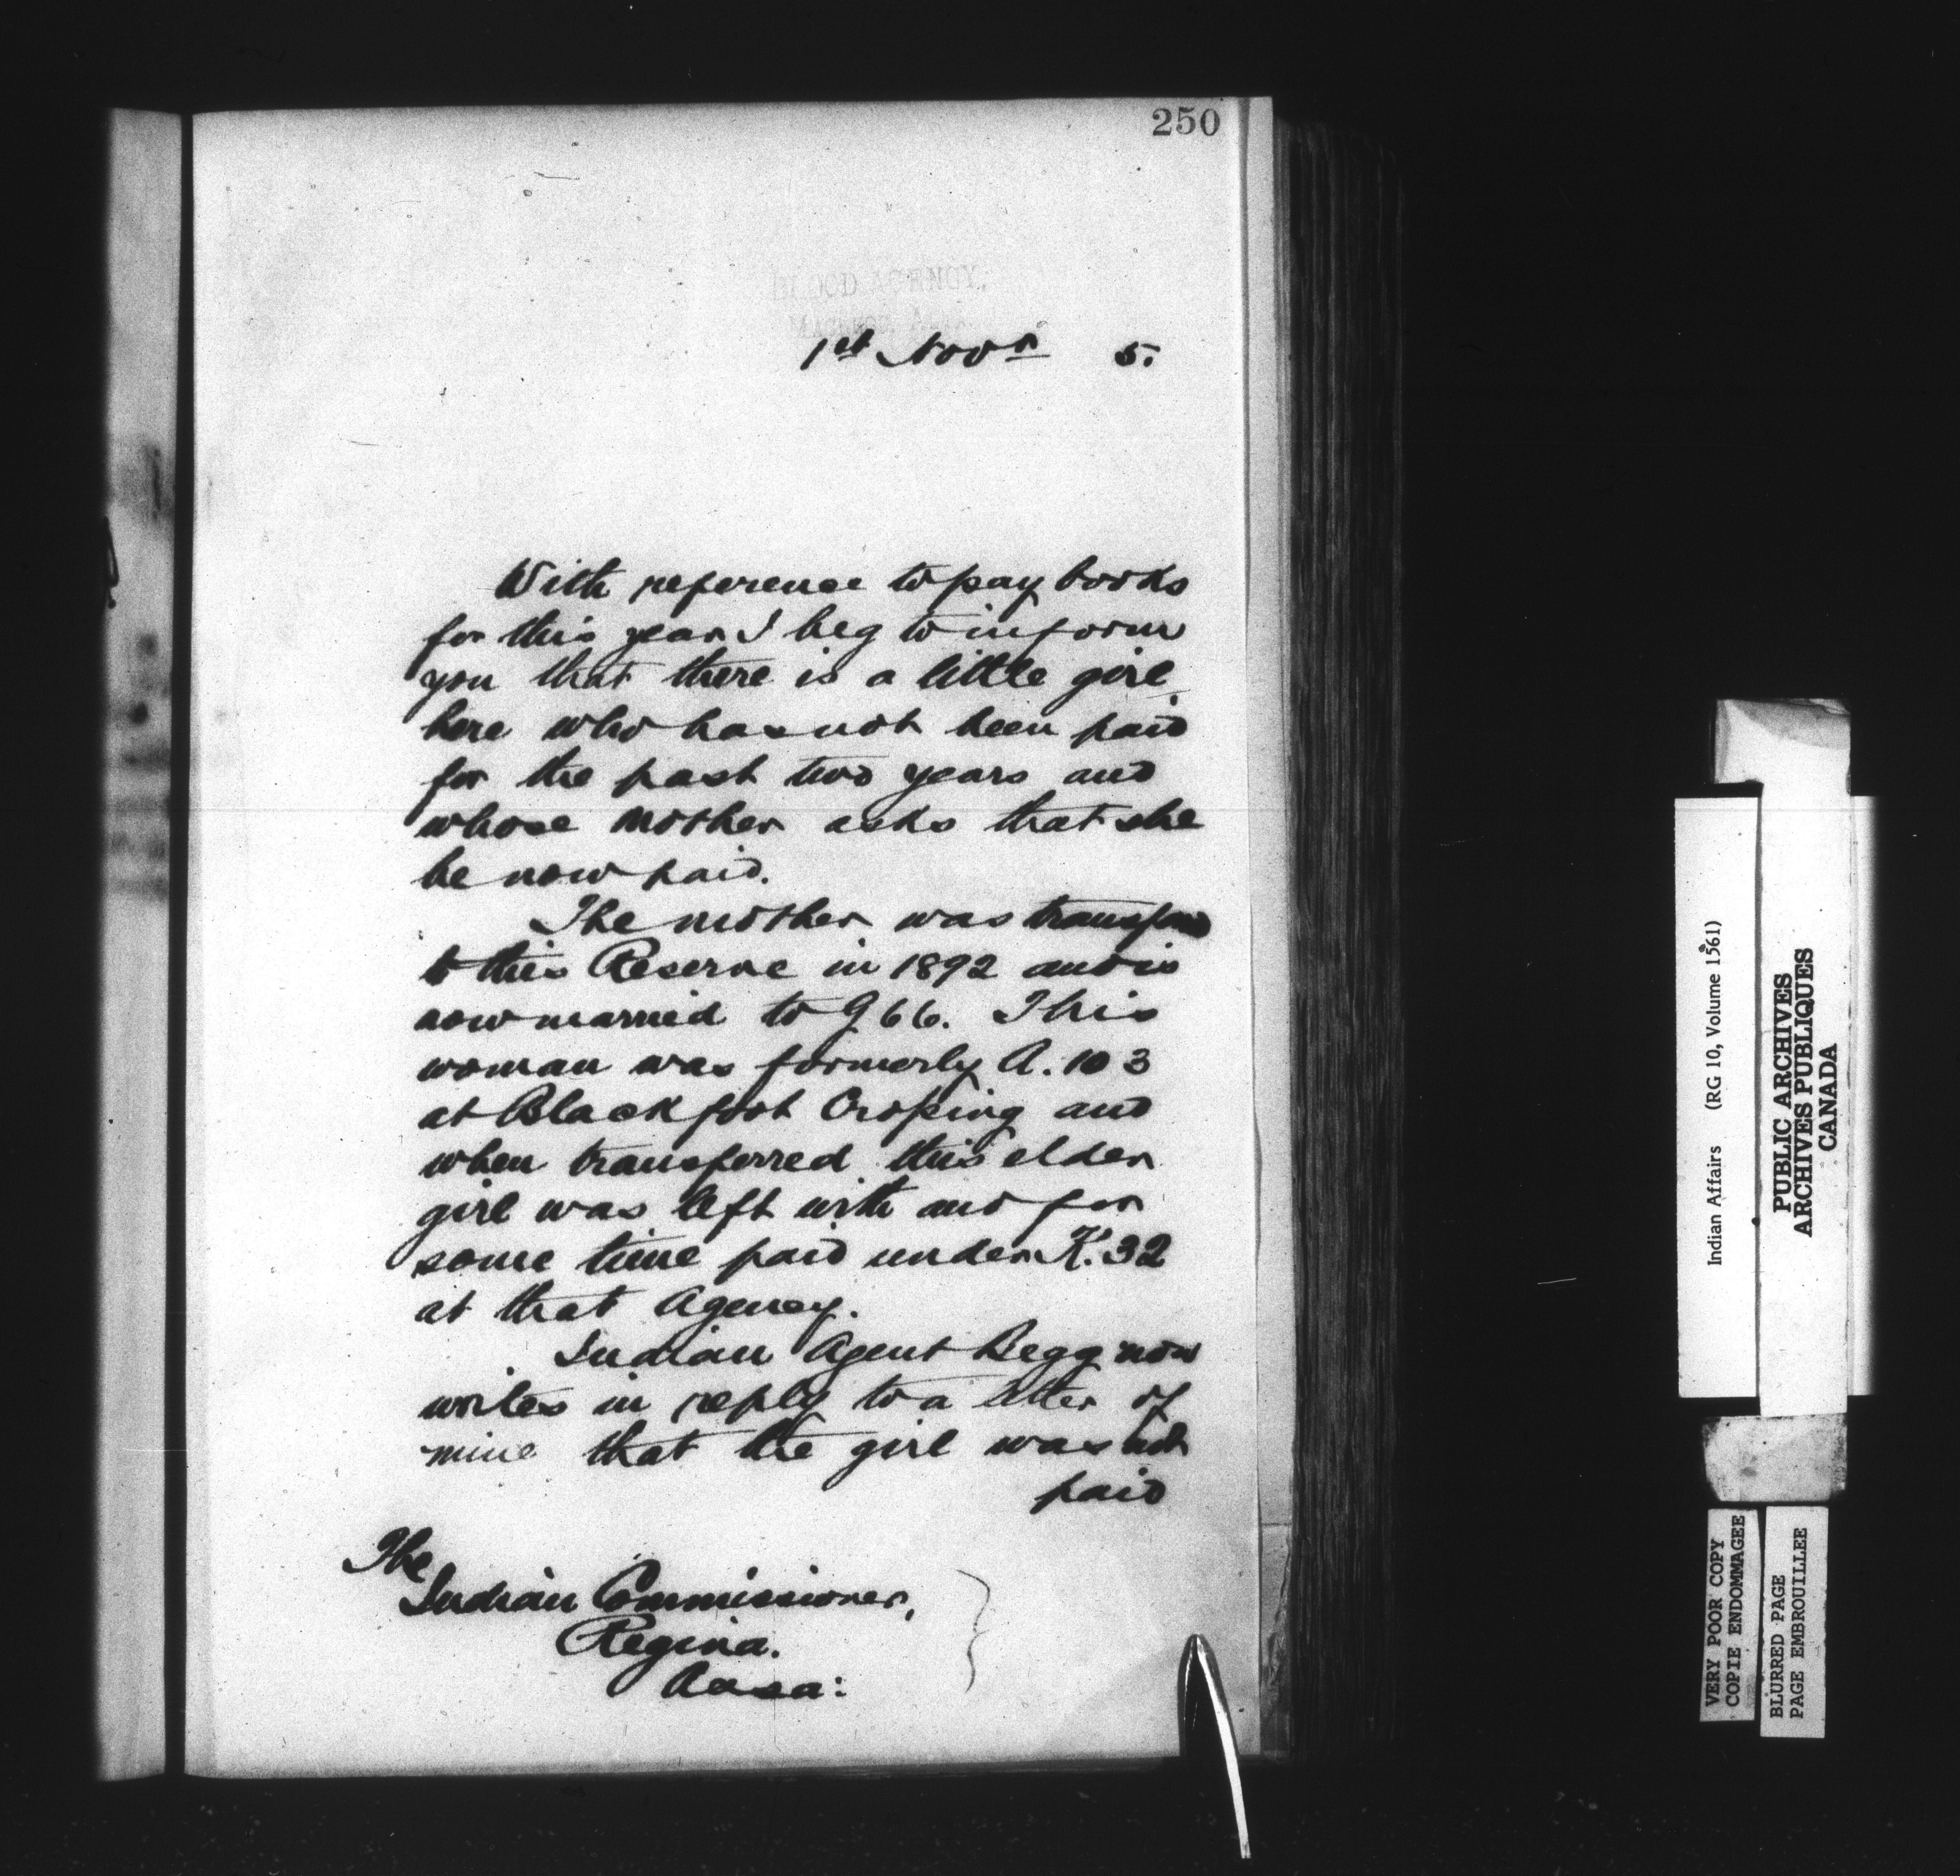 250
BLOOD AGENCY,
1st Novr 5.
With reference to pay books
for this year I beg to inform
you that there is a little girl
here who has not been paid
for the past two years and
whose mother asks that she
be now paid.
The mother was transfrd
to this Reserve in 1892 and is
now married to G 66. This
woman was formerly A. 103
at Blackfoot Crossing and
when transferred this elder
girl was left with and for
some time paid under K. 32
at that Agency.
Indian Agent Begg now
writes in reply to a letter of
mine that the girl was not
paid
The
Indian Commissioner,
Regina.
Assa:
Indian Affairs (RG 10, Volume 1561)
PUBLIC ARCHIVES
ARCHIVES PUBLIQUES
CANADA
VERY POOR COPY
COPIE ENDOMMAGEE
BLURRED PAGE
PAGE EMBROUILLEE